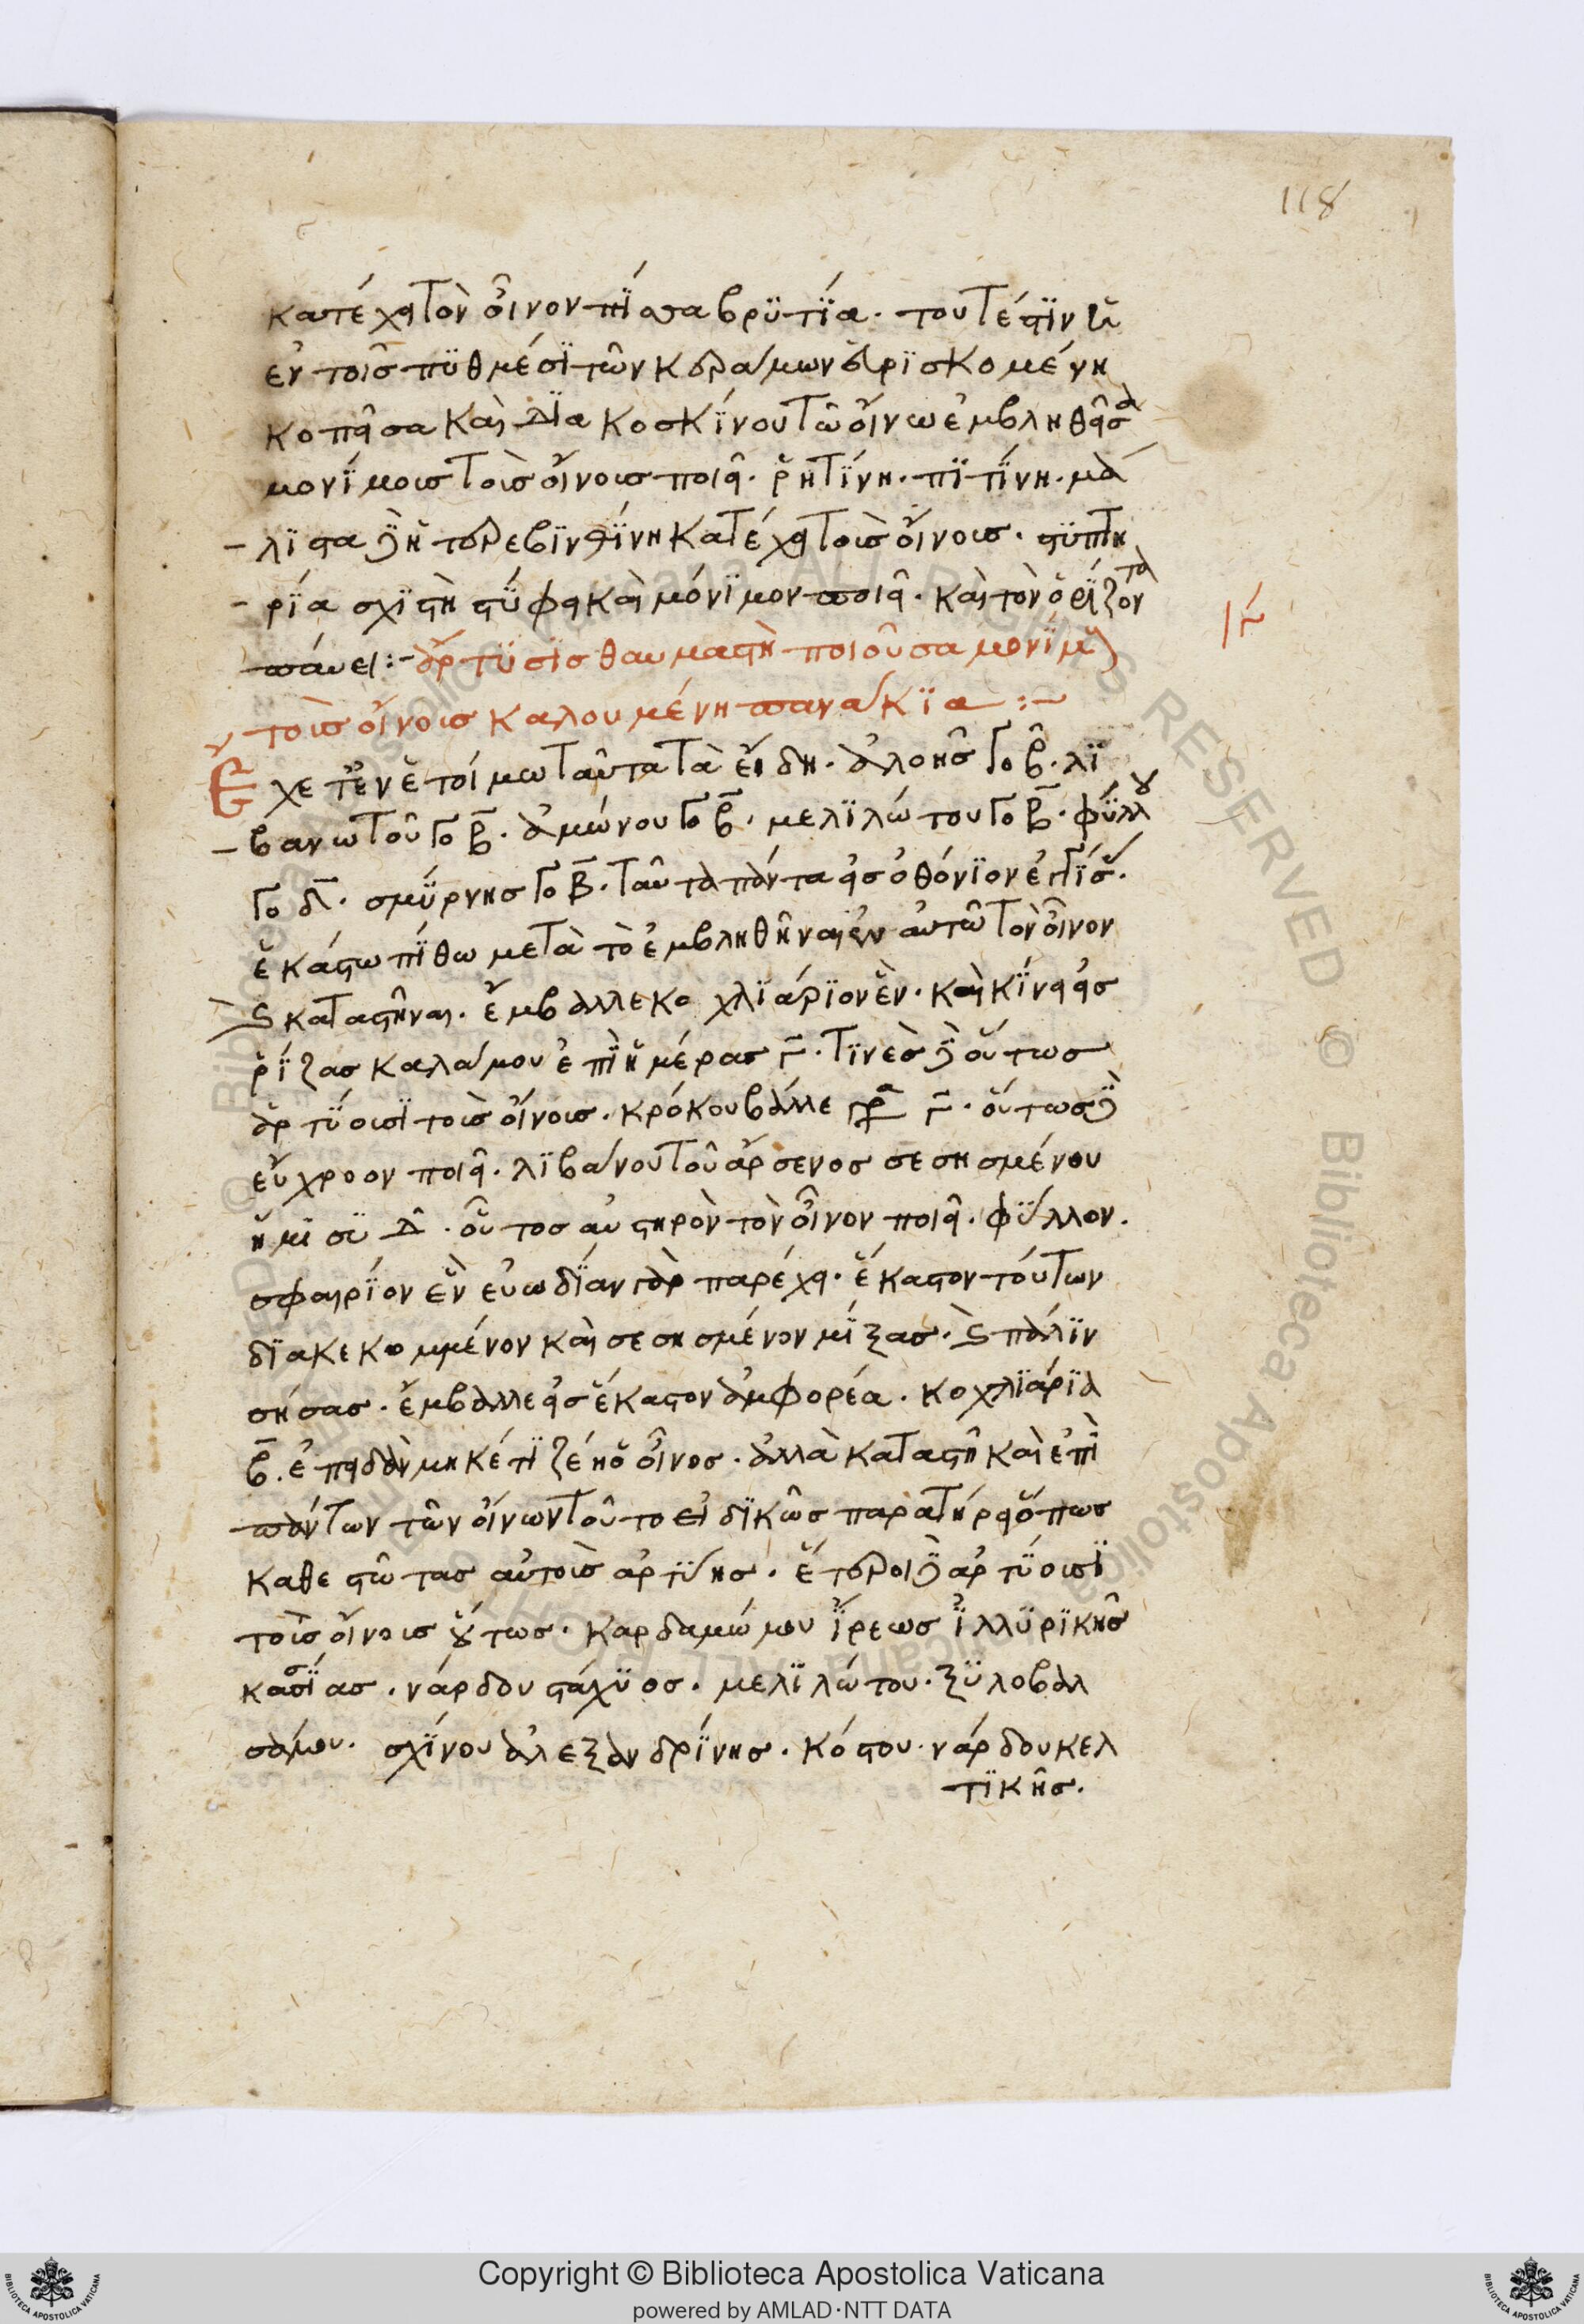 118
κατέχει τὸν οἶνον πίσσα βρυτία. τουτέστιν ἡ
ἐν τοῖς πυθμέσι τῶν κεράμων εὑρισκομένη
κοπεῖσα καὶ διὰ κοσκίνου τῶ οἴνω ἐμβληθεῖσα
μονίμοις τοῖς οἴνοις ποιεῖ. ῥητίνη. πιτίνη. μά
λιστα δὲ ἡ τερεβινθίνη κατέχει τοῖς οἴνοις. στυπτη
ρία σχιστὴ στύφει καὶ μόνιμον ποιεῖ. καὶ τὸν ὀξίζοντα
παύει:-ἄρτυσις θαυμαστὴ ποιοῦσα μονίμους
τοῖς οἴνοις καλουμένη πανάκια:-
ιγ
Ἔχε ἐν ἑτοίμω ταῦτα τὰ εἴδη. ἀλοῆς γο β. λι
βανωτοῦ γο β. ἀμώνου γο β. μελιλώτου γο β. φύλλου
γο δ. σμύρνης γο β. ταῦτα πάντα εἰς ὀθόνιον
ἑκάστω πίθω μετὰ τὸ ἐμβληθῆναι ἐν αὐτῶ τὸν οἶνον
καὶ καταστῆναι. ἔμβαλλε κοχλιάριον ἕν. καὶ κίνει εἰς
ῥίζας καλάμου ἐπὶ ἡμέρας γ. τινὲς δὲ οὕτως
ἀρτύουσι τοῖς οἴνοις. κρόκου βάλλε γρ γ. οὕτως δὲ
εὔχροον ποιεῖ. λιβάνου τοῦ ἄρσενος σεσησμένου
ἥμισυ οὗτος αὐστηρὸν τὸν οἶνον ποιεῖ. φύλλον.
σφαιρίον ἓν εὐωδίαν γὰρ παρέχει. ἕκαστον τούτων
διακεκομμένον καὶ σεσησμένον μίξας. καὶ πάλιν
σήσας. ἔμβαλλε εἰς ἕκαστον ἀμφορέα. κοχλιάρια
β. ἐπειδὰν μηκέτι ζέη ὁ οἶνος. ἀλλὰ καταστῆ καὶ ἐπὶ
πάντων τῶν οἴνων τοῦτο εἰδικῶς παρατήρει ὅπως
καθεστῶτας αὐτοῖς ἀρτύης. ἕτεροι δὲ ἀρτύουσι
τοῖς οἴνοις οὕτως. καρδαμώμου ἴρεως ἰλλυρικῆς
κασσίας. νάρδου στάχυος. μελιλώτου. ξυλοβαλ
σάμου. σχίνου ἀλεξανδρίνης. κόστου. νάρδου κελ
τικῆς.
© Biblioteca Apostolica Vaticana ALL RIGHTS RESERVED
Copyright © Biblioteca Apostolica Vaticana
powered by AMLAD·NTT DATA
BIBLIOTECA APOSTOLICA VATICANA
BIBLIOTECA APOSTOLICA VATICANA